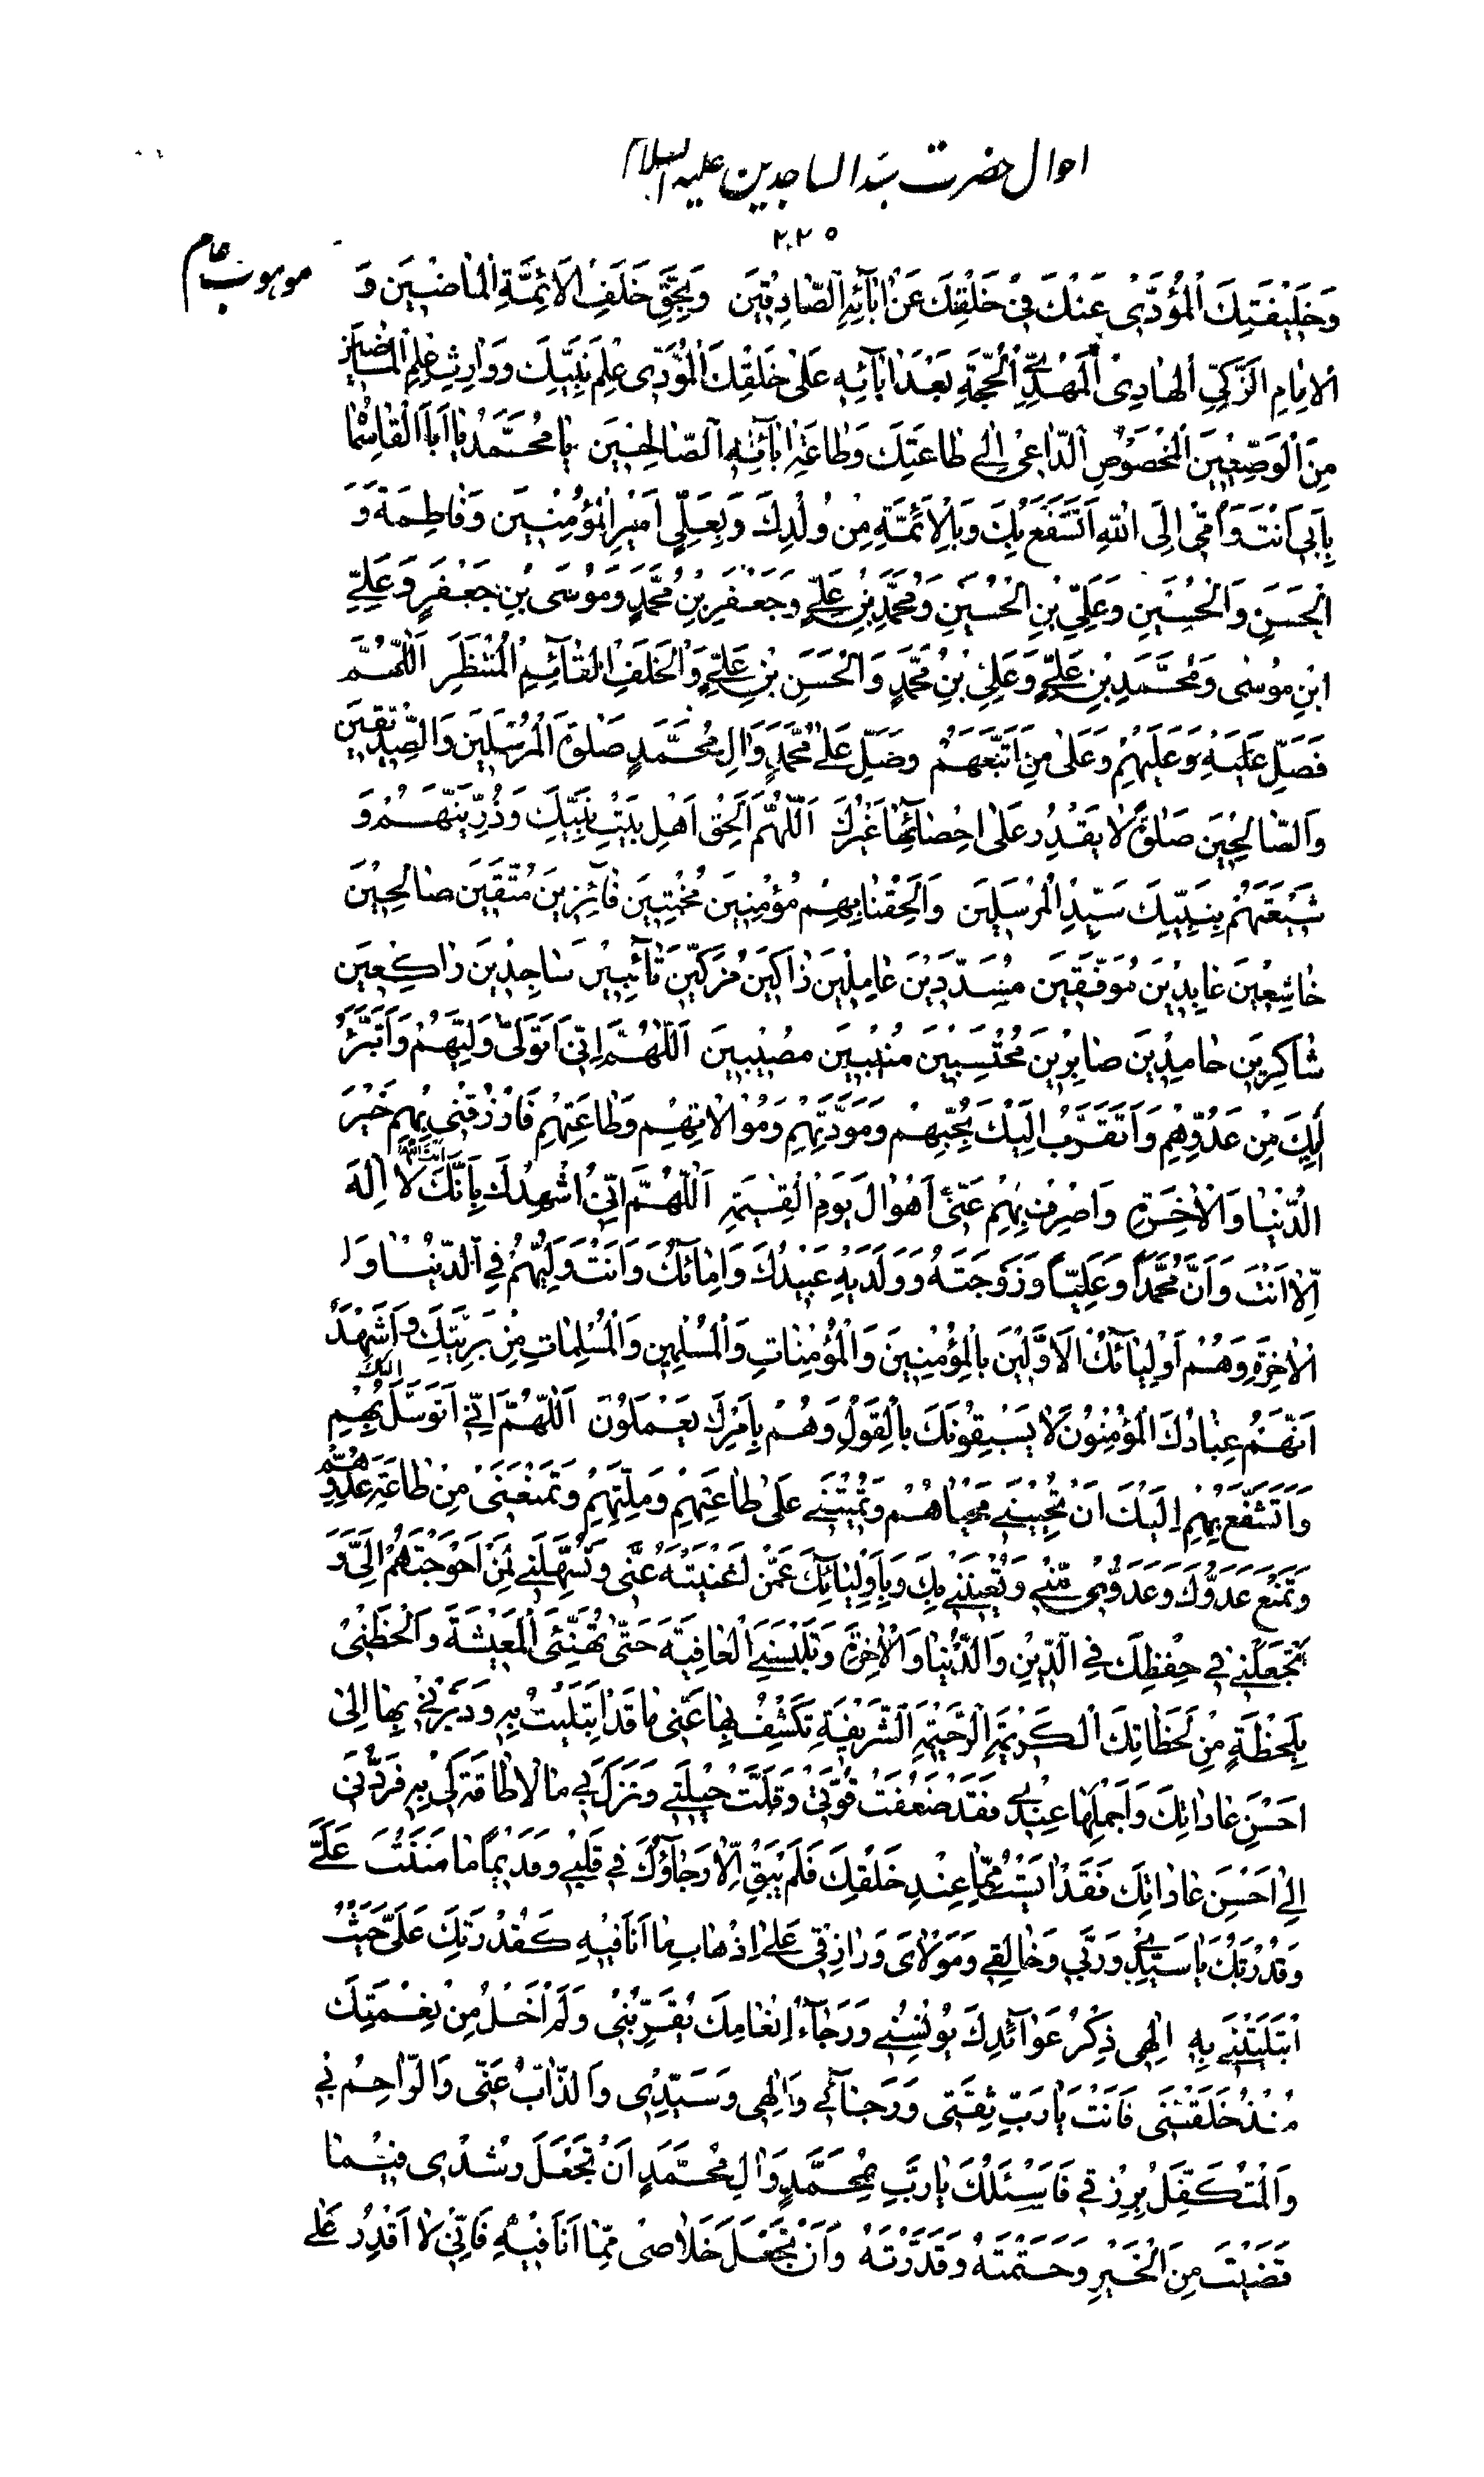 احوال حضرت سید الساجدین علیه السلام
۲۲۵
موهوب عام
وَخَلِيفَتِكَ الْمُؤَدّي عَنْكَ في خَلْقِكَ عَنْ آبَآئِهِ الصَّادِقينَ وَبِحَقِّ خَلَفِ الْاَئِمَّةِ الْمَاضينَ وَ
الْاِمَامِ الزَّكِيِّ الْهَادِي الْمَهْدِيِّ الْحُجَّةِ بَعْدَ آبَآئِهِ عَلى خَلْقِكَ الْمُؤَدّي عِلْمَ نَبِيِّكَ وَوَارِثِ عِلْمِ الْمَاضينَ
مِنَ الْوَصِيّينَ الْمَخْصُوصِ الدَّاعي اِلى طَاعَتِكَ وَطَاعَةِ آبَآئِهِ الصَّالِحينَ يَا مُحَمَّدُ يَا اَبَا الْقَاسِمَا
بِاَبي اَنْتَ وَاُمّي اِلَى اللهِ اَتَشَفَّعُ بِكَ وَبِالْاَئِمَّةِ مِنْ وُلْدِكَ وَبِعَلِيٍّ اَميرِ الْمُؤْمِنينَ وَفَاطِمَةَ وَ
الْحَسَنِ وَالْحُسَيْنِ وَعَلِيِّ بْنِ الْحُسَيْنِ وَمُحَمَّدِ بْنِ عَلِيٍّ وَجَعْفَرِ بْنِ مُحَمَّدٍ وَمُوسَى بْنِ جَعْفَرٍ وَعَلِيِّ
ابْنِ مُوسى وَمُحَمَّدِ بْنِ عَلِيٍّ وَعَلِيِّ بْنِ مُحَمَّدٍ وَالْحَسَنِ بْنِ عَلِيٍّ وَالْخَلَفِ الْقَآئِمِ الْمُنْتَظَرِ اَللّهُمَّ
فَصَلِّ عَلَيْهِ وَعَلَيْهِمْ وَعَلى مَنِ اتَّبَعَهُمْ وَصَلِّ عَلى مُحَمَّدٍ وَالِ مُحَمَّدٍ صَلوةَ الْمُرْسَلينَ وَالصِّدّيقينَ
وَالصَّالِحينَ صَلوةً لَا يَقْدِرُ عَلى اِحْصَآئِهَا غَيْرُكَ اَللّهُمَّ اَلْحِقْ اَهْلَ بَيْتِ نَبِيِّكَ وَذُرِّيَّتَهُمْ وَ
شيعَتَهُمْ بِنَبِيِّكَ سَيِّدِ الْمُرْسَلينَ وَاَلْحِقْنَا بِهِمْ مُؤْمِنينَ مُخْبِتينَ فَآئِزينَ مُتَّقينَ صَالِحينَ
خَاشِعينَ عَابِدينَ مُوَفَّقينَ مُسَدَّدينَ عَامِلينَ زَاكينَ مُزَكّينَ تَآئِبينَ سَاجِدينَ رَاكِعينَ
شَاكِرينَ حَامِدينَ صَابِرينَ مُحْتَسِبينَ مُنيبينَ مُصيبينَ اَللّهُمَّ اِنّي اَتَوَلّى وَلِيَّهُمْ وَاَتَبَرَّؤُ
اِلَيْكَ مِنْ عَدُوِّهِمْ وَاَتَقَرَّبُ اِلَيْكَ بِحُبِّهِمْ وَمَوَدَّتِهِمْ وَمُوَالَاتِهِمْ وَطَاعَتِهِمْ فَارْزُقْني بِهِمْ خَيْرَ
الدُّنْيَا وَالْآخِرَةِ وَاصْرِفْ بِهِمْ عَنّي اَهْوَالَ يَوْمِ الْقِيمَةِ اَللّهُمَّ اِنّي اُشْهِدُكَ بِاَنَّكَ اَنْتَ اللهُ لَا اِلهَ
اِلَّا اَنْتَ وَاَنَّ مُحَمَّداً وَعَلِيّاً وَزَوْجَتَهُ وَوَلَدَيْهِ عَبيدُكَ وَاِمَائُكَ وَاَنْتَ وَلِيُّهُمْ فِي الدُّنْيَا وَا
لْآخِرَةِ وَهُمْ اَوْلِيَآئُكَ الْاَوَّلينَ بِالْمُؤْمِنينَ وَالْمُؤْمِنَاتِ وَالْمُسْلِمينَ وَالْمُسْلِمَاتِ مِنْ بَرِيَّتِكَ وَاَشْهَدُ
اَنَّهُمْ عِبَادُكَ الْمُؤْمِنُونَ لَا يَسْبِقُونَكَ بِالْقَوْلِ وَهُمْ بِاَمْرِكَ يَعْمَلُونَ اَللّهُمَّ اِنّي اَتَوَسَّلُ اِلَيْكَ بِهِمْ
وَاَتَشَفَّعُ بِهِمْ اِلَيْكَ اَنْ تُحْيِيَني مَحْيَاهُمْ وَتُميتَني عَلى طَاعَتِهِمْ وَمِلَّتِهِمْ وَتَمْنَعَني مِنْ طَاعَةِ عَدُوِّهِمْ
وَتَمْنَعَ عَدُوَّكَ وَعَدُوّي مِنّي وَتُعينَني بِكَ وَبِاَوْلِيَائِكَ عَمَّنْ اَغْنَيْتَهُ عَنّي وَتُسَهِّلَني لِمَنْ اَحْوَجْتَهُمْ اِلَيَّ وَ
تَجْعَلَني في حِفْظِكَ فِي الدّينِ وَالدُّنْيَا وَالْآخِرَةِ وَتُلْبِسَنِي الْعَافِيَةَ حَتّى تُهَنِّئَنِي الْمَعيشَةَ وَالْحَظْني
بِلَحْظَةٍ مِنْ لَحَظَاتِكَ الْكَريمَةِ الرَّحيمَةِ الشَّريفَةِ تَكْشِفُ بِهَا عَنّي مَا قَدِ ابْتُليتُ بِهِ وَدَبِّرْني بِهَا اِلى
اَحْسَنِ عَادَاتِكَ وَاَجْمَلِهَا عِنْدي فَقَدْ ضَعُفَتْ قُوَّتي وَقَلَّتْ حيلَتي وَنَزَلَ بي مَا لَا طَاقَةَ لي بِهِ فَرُدَّني
اِلى اَحْسَنِ عَادَاتِكَ فَقَدْ اَيِسْتُ مِمَّا عِنْدَ خَلْقِكَ فَلَمْ يَبْقَ اِلَّا رَجَآؤُكَ في قَلْبي وَقَديماً مَا مَنَنْتَ عَلَيَّ
وَقُدْرَتُكَ يَا سَيِّدي وَرَبّي وَخَالِقي وَمَوْلَايَ وَرَازِقي عَلى اِذْهَابِ مَا اَنَا فيهِ كَقُدْرَتِكَ عَلَيَّ حَيْثُ
ابْتَلَيْتَني بِهِ اِلهي ذِكْرُ عَوَآئِدِكَ يُونِسُني وَرَجَآءُ اِنْعَامِكَ يُقَرِّبُني وَلَمْ اَخْلُ مِنْ نِعْمَتِكَ
مُنْذُ خَلَقْتَني فَاَنْتَ يَا رَبِّ ثِقَتي وَرَجَآئي وَاِلهي وَسَيِّدي وَالذَّابُّ عَنّي وَالرَّاحِمُ بي
وَالْمُتَكَفِّلُ بِرِزْقي فَاَسْئَلُكَ يَا رَبِّ بِمُحَمَّدٍ وَالِ مُحَمَّدٍ اَنْ تَجْعَلَ رُشْدي فيمَا
قَضَيْتَ مِنَ الْخَيْرِ وَحَتَمْتَهُ وَقَدَّرْتَهُ وَاَنْ تَجْعَلَ خَلَاصي مِمَّا اَنَا فيهِ فَاِنّي لَا اَقْدِرُ عَلى